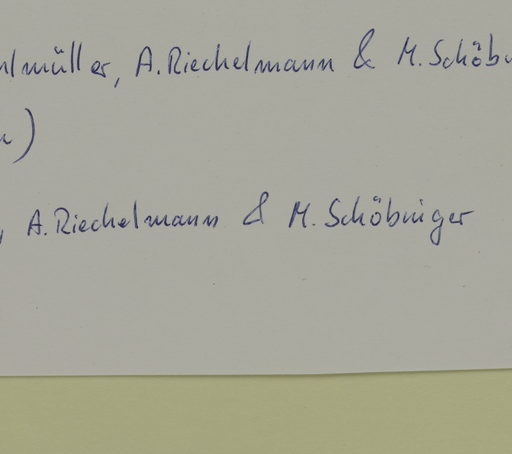 lmüller, A. Riechelmann & M. Schöb
)
, A. Riechelmann & M. Schöbinger